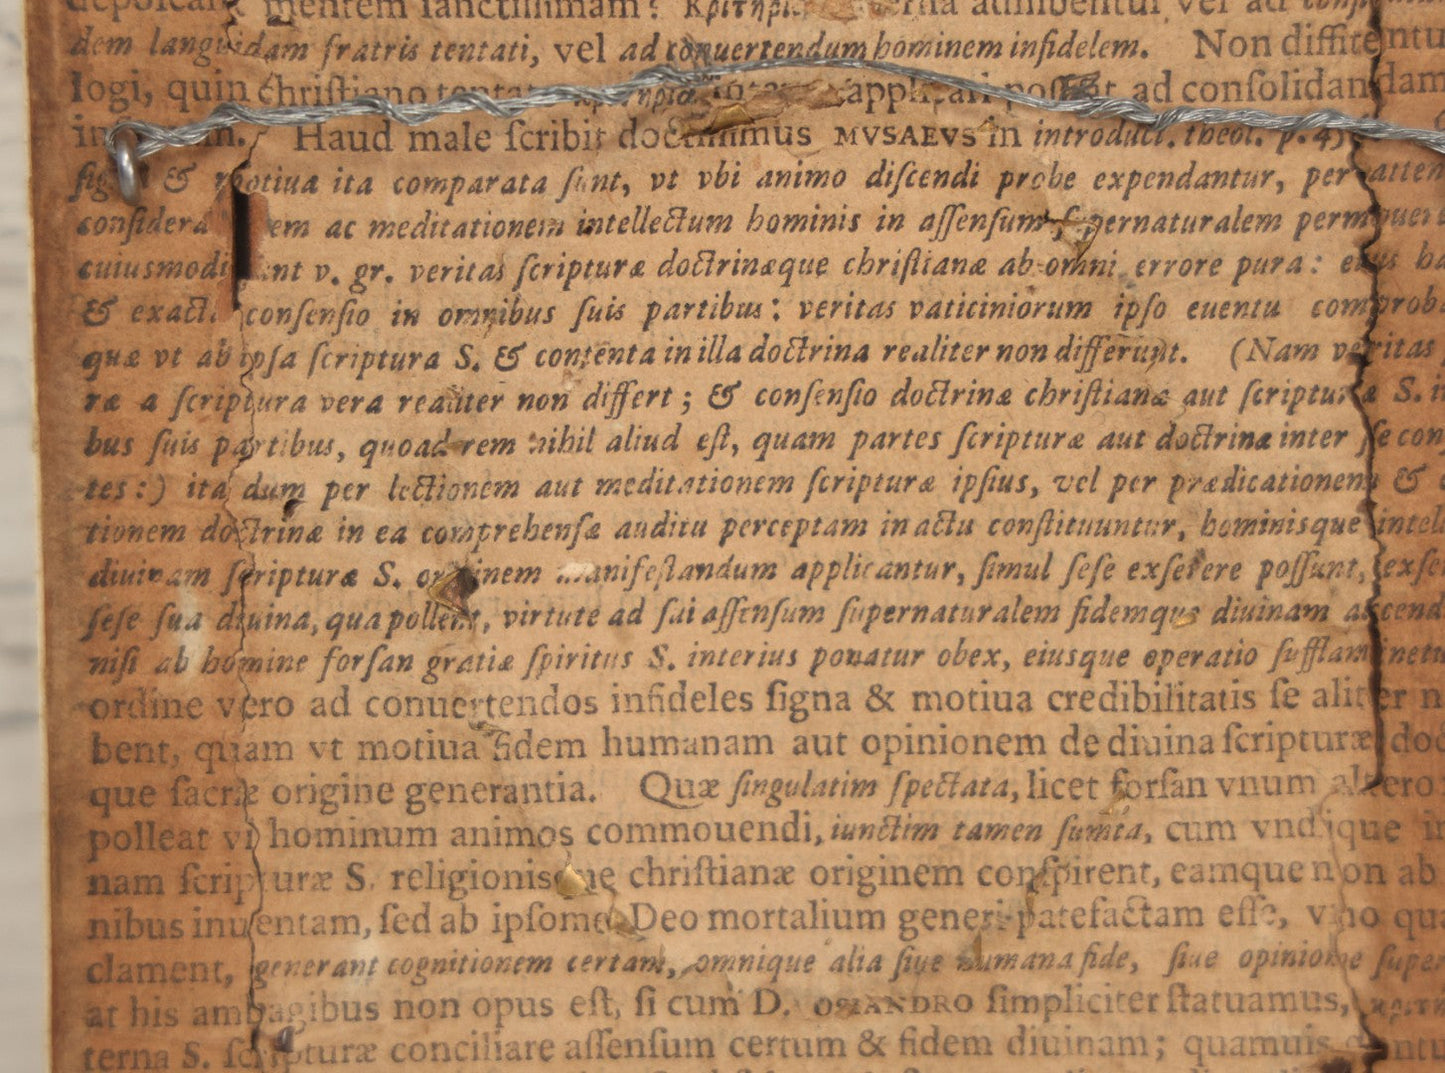 mentem ſanctiſſimam: adhibentur vel ad
dem languidam fratris tentati, vel ad conuertendum hominem infidelem. Non diffitentu
logi, quin chriſtiano applicari poſſint ad conſolidandam
Haud male ſcribit doctiſſimus MVSAEVS in introduct. theol. p.
ſigna & motiua ita comparata ſunt, vt vbi animo diſcendi probe expendantur, per atten
ac meditationem intellectum hominis in aſſenſum ſupernaturalem
cuiusmodi ſunt v. gr. veritas ſcripturæ doctrinæque chriſtianæ ab omni errore pura: eius
& exact conſenſio in omnibus ſuis partibus: veritas vaticiniorum ipſo euentu comprob
quæ vt ab ipſa ſcriptura S. & contenta in illa doctrina realiter non differunt. (Nam veritas
ræ a ſcriptura vera realiter non differt; & conſenſio doctrinæ chriſtianæ aut ſcripturæ S. i
bus ſuis partibus, quoad rem nihil aliud eſt, quam partes ſcripturæ aut doctrinæ inter ſe con
tes:) ita dum per lectionem aut meditationem ſcripturæ ipſius, vel per prædicationem &
tionem doctrinæ in ea comprehenſæ auditu perceptam in actu conſtituuntur, hominisque intel
diuinam ſcripturæ S. originem manifeſtandum applicantur, ſimul ſeſe exſerere poſſunt, exſe
ſeſe ſua diuina, qua pollent, virtute ad ſui aſſenſum ſupernaturalem fidemque diuinam
niſi ab homine forſan gratiæ ſpiritus S. interius ponatur obex, eiusque operatio
ordine vero ad conuertendos infideles ſigna & motiua credibilitatis ſe aliter
bent, quam vt motiua fidem humanam aut opinionem de diuina ſcripturæ doc
que ſacræ origine generantia. Quæ ſingulatim ſpectata, licet forſan vnum altero
polleat vi hominum animos commouendi, iunctim tamen ſumta, cum vndique
nam ſcripturæ S. religionisque chriſtianæ originem conſpirent, eamque non ab
nibus inuentam, ſed ab ipſomet Deo mortalium generi patefactam eſſe, vno qua
clament, generant cognitionem certam, omnique alia ſiue humana fide, ſiue opinione ſuper
at his ambagibus non opus eſt, ſi cum D. OSIANDRO ſimpliciter ſtatuamus,
terna S. ſcripturæ conciliare aſſenſum certum & fidem diuinam; quamuis